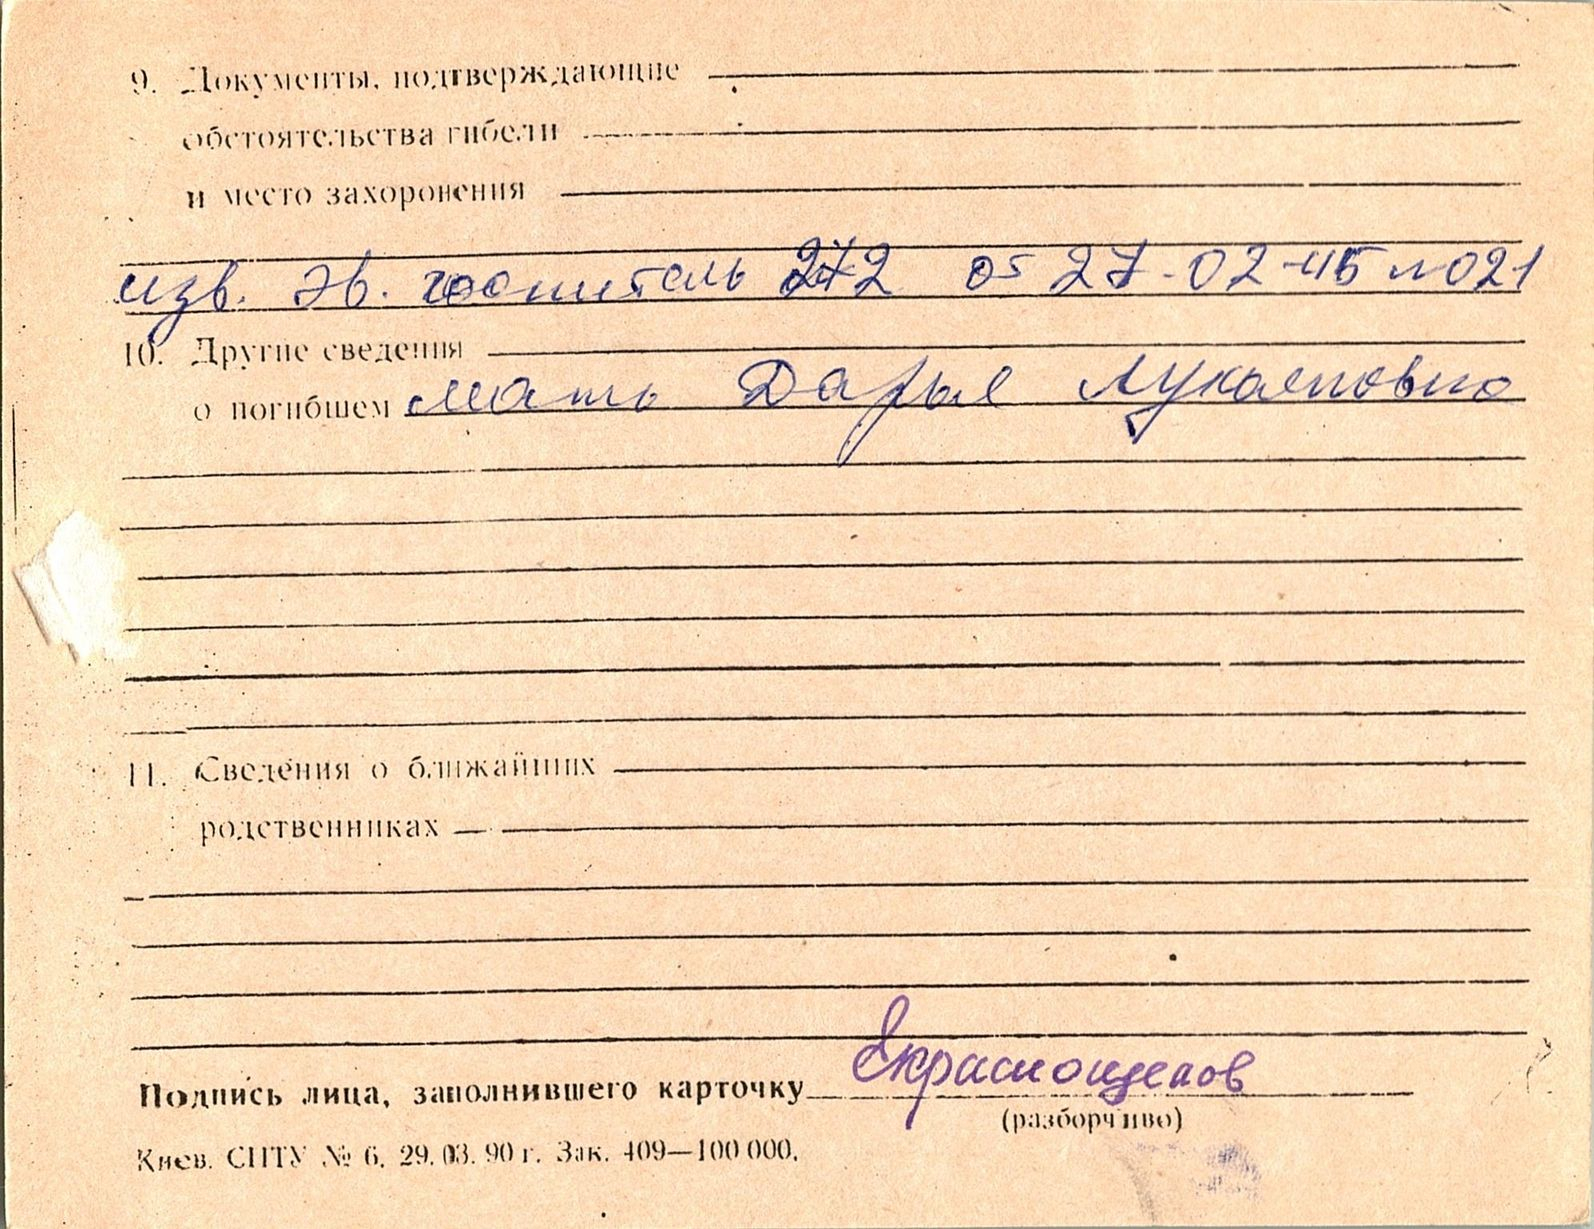 9. Документы, подтверждающие
обстоятельства гибели
и место захоронения
изв. Эв. госпиталь 272 от 27-02-45 № 021
10. Другие сведения
о погибшем мать Дарья Лукаповно
11. Сведения о ближайших
родственниках
Подпись лица, заполнившего карточку Якраснощепов
(разборчиво)
Киев. СПТУ № 6. 29.03.90 г. Зак. 409—100 000.